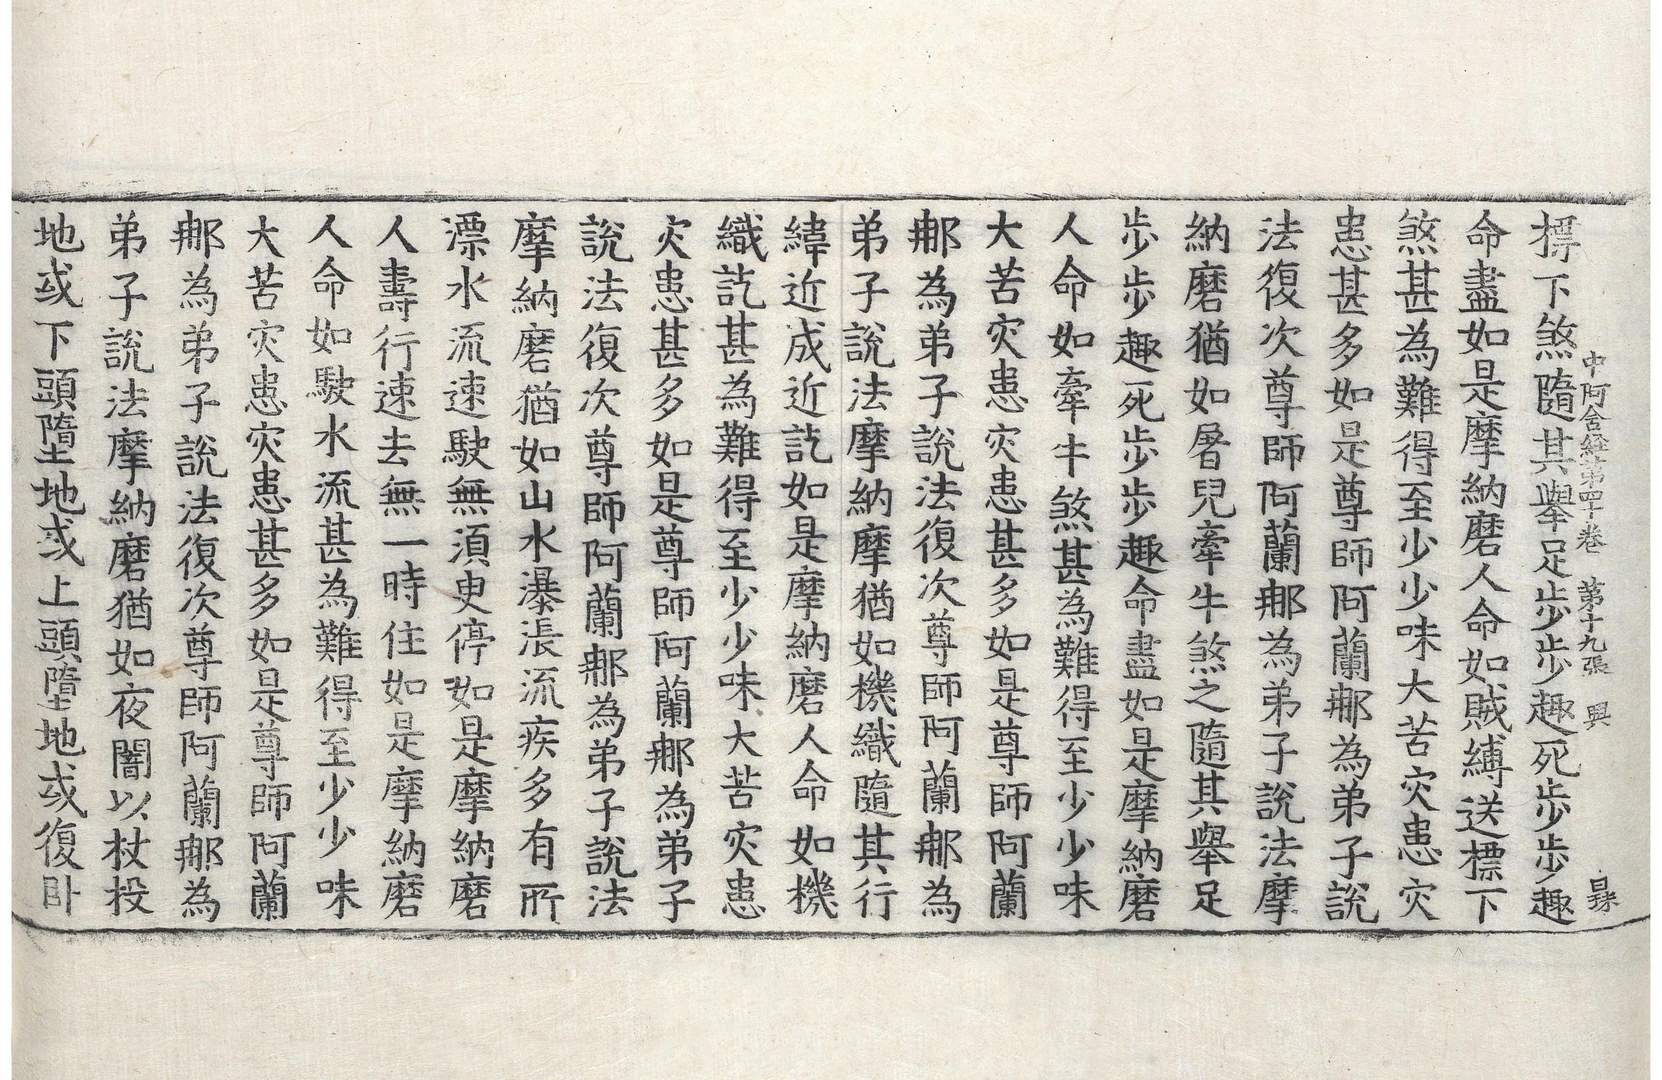 中阿含經第四十卷　第十九張　興
標下煞隨其舉足步步趣死步步趣
命盡如是摩納磨人命如賊縛送標下
煞甚為難得至少少味大苦灾患灾
患甚多如是尊師阿蘭那為弟子說
法復次尊師阿蘭那為弟子說法摩
納磨猶如屠兒牽牛煞之隨其舉足
步步趣死步步趣命盡如是摩納磨
人命如牽牛煞甚為難得至少少味
大苦灾患灾患甚多如是尊師阿蘭
那為弟子說法復次尊師阿蘭那為
弟子說法摩納摩猶如機織隨其行
緯近成近訖如是摩納磨人命如機
織訖甚為難得至少少味大苦灾患
灾患甚多如是尊師阿蘭那為弟子
說法復次尊師阿蘭那為弟子說法
摩納磨猶如山水瀑漲流疾多有所
漂水流速駛無須更停如是摩納磨
人壽行速去無一時住如是摩納磨
人命如駛水流甚為難得至少少味
大苦灾患灾患甚多如是尊師阿蘭
那為弟子說法復次尊師阿蘭那為
弟子說法摩納磨猶如夜闇以杖投
地或下頭墮地或上頭墮地或復卧